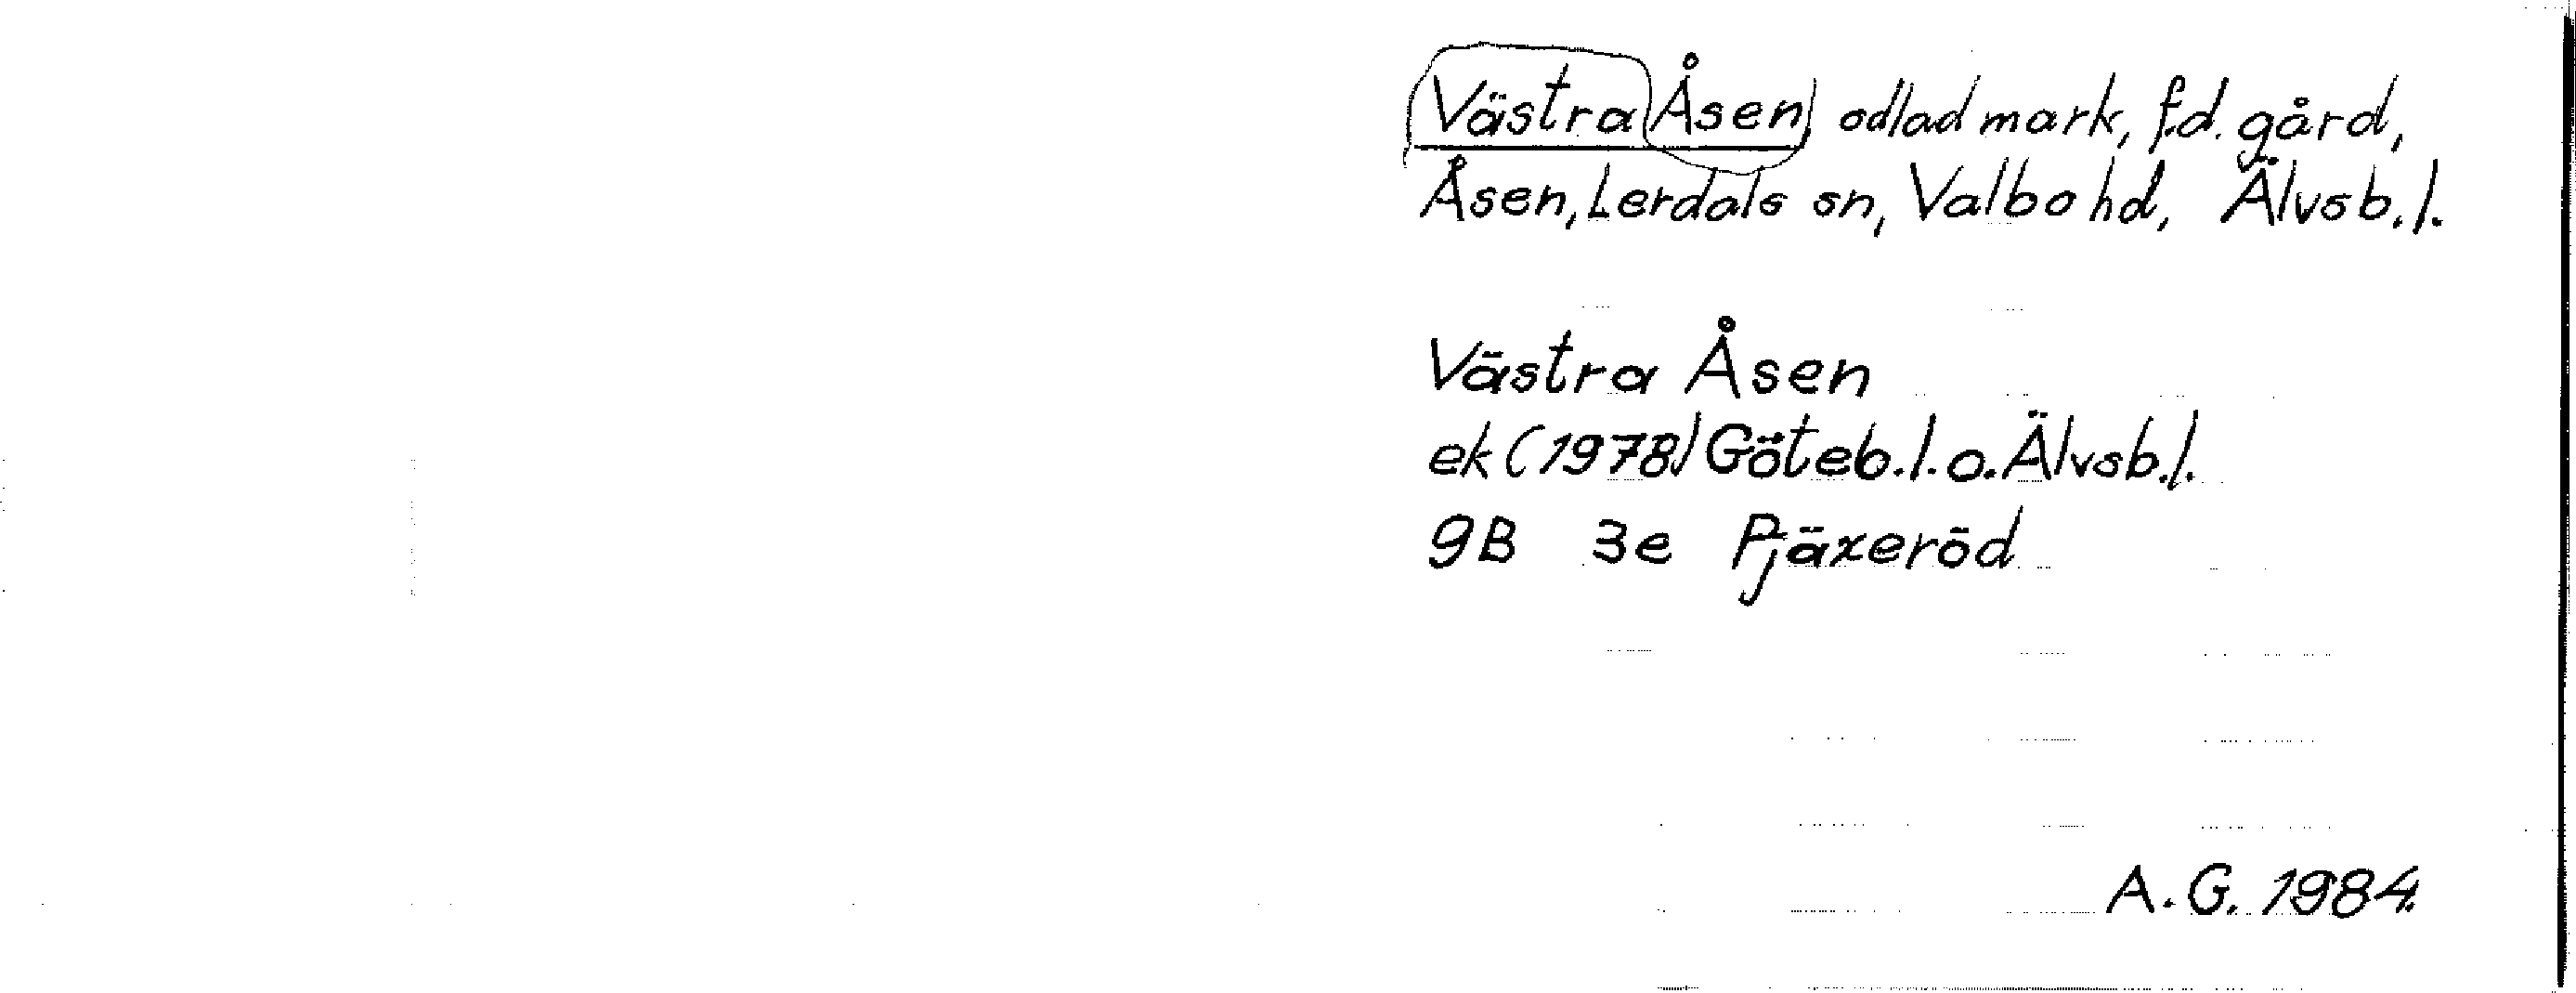 Västra Åsen, odlad mark, f.d. gård,
Åsen, Lerdals sn, Valbo hd, Älvsb.l.
Västra Åsen
ek (1978) Göteb.l.o. Älvsb.l.
9B 3e Pjäxeröd
A.G. 1984.